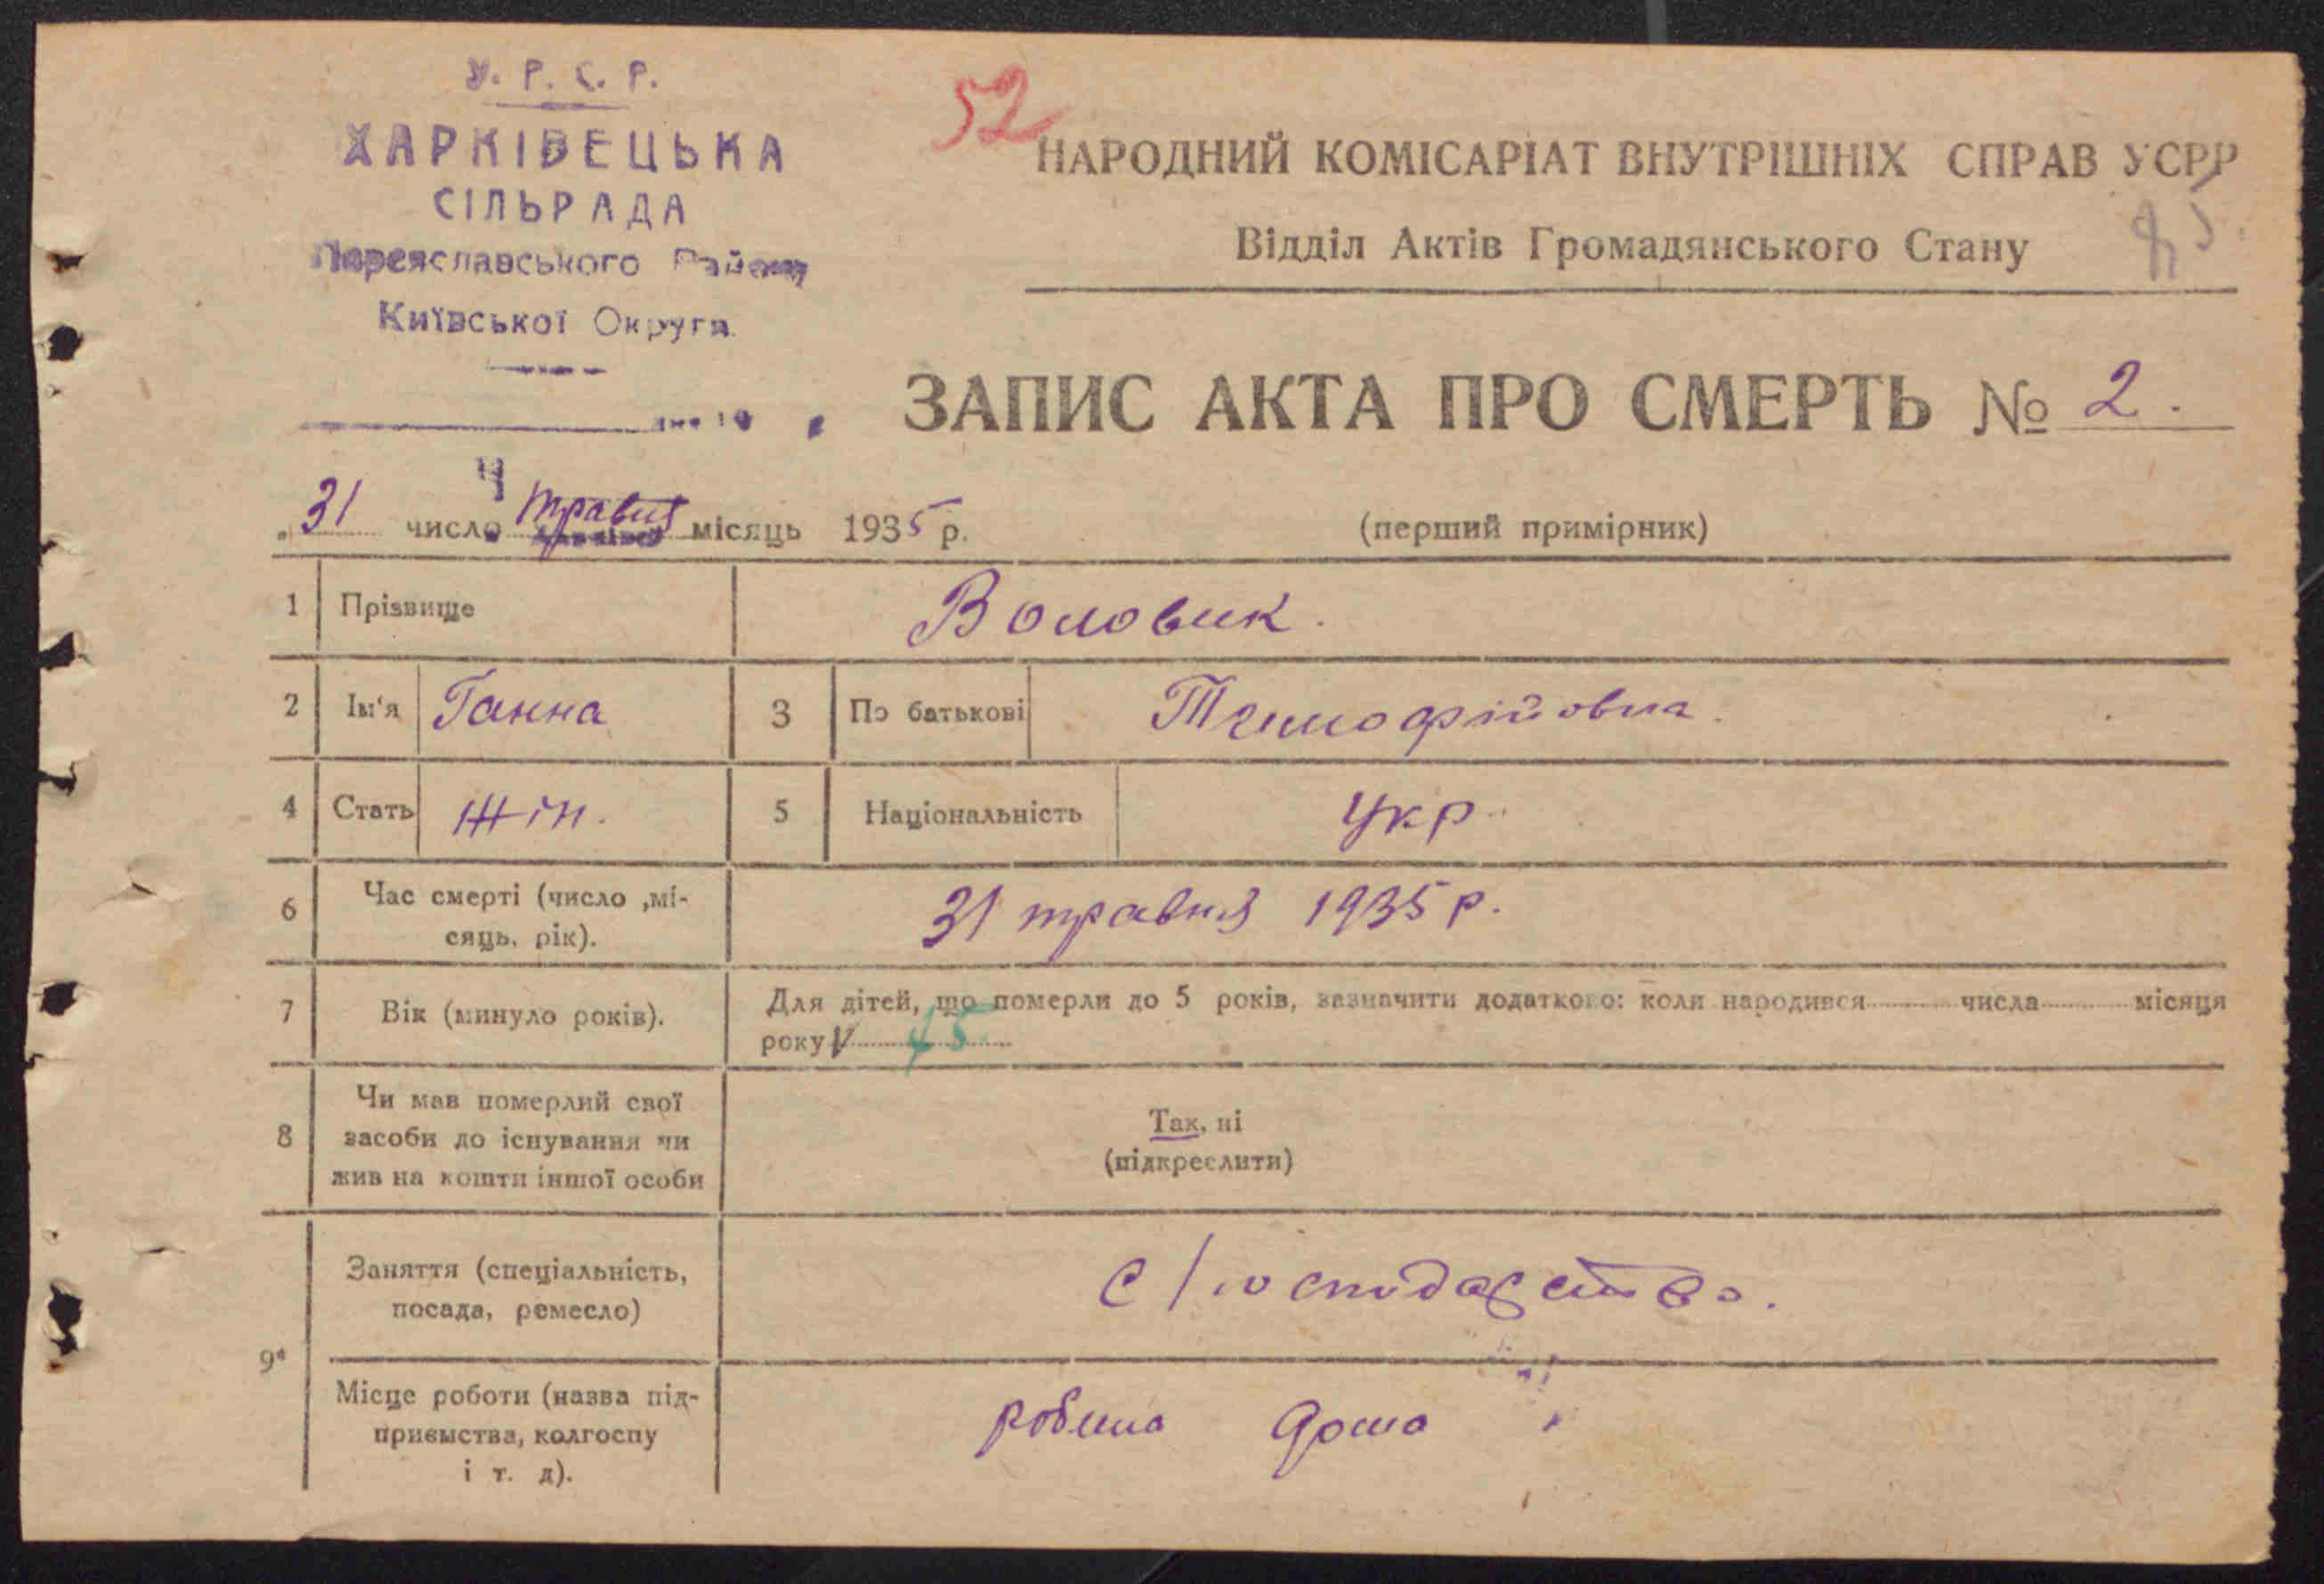 У. Р. С. Р.
ХАРКІВЕЦЬКА
СІЛЬРАДА
Переяславського Району
Київської Округи
52
НАРОДНИЙ КОМІСАРІАТ ВНУТРІШНІХ СПРАВ УСРР
Відділ Актів Громадянського Стану
ЗАПИС АКТА ПРО СМЕРТЬ № 2.
„31 число травня місяць 1935 р.
(перший примірник)
1 Прізвище Воловик.
2 Ім'я Ганна 3 По батькові Тимофійовна.
4 Стать Жін. 5 Національність Укр.
6 Час смерті (число ,мі-
сяць, рік). 31 травня 1935 р.
7 Вік (минуло років). Для дітей, що померли до 5 років, зазначити додатково: коли народився числа місяця
року V 45
8 Чи мав померлий свої
засоби до існування чи
жив на кошти іншої особи
Так, ні
(підкреслити)
9* Заняття (спеціальність,
посада, ремесло) с/господарство.
Місце роботи (назва під-
приємства, колгоспу
і т. д).
робила дома